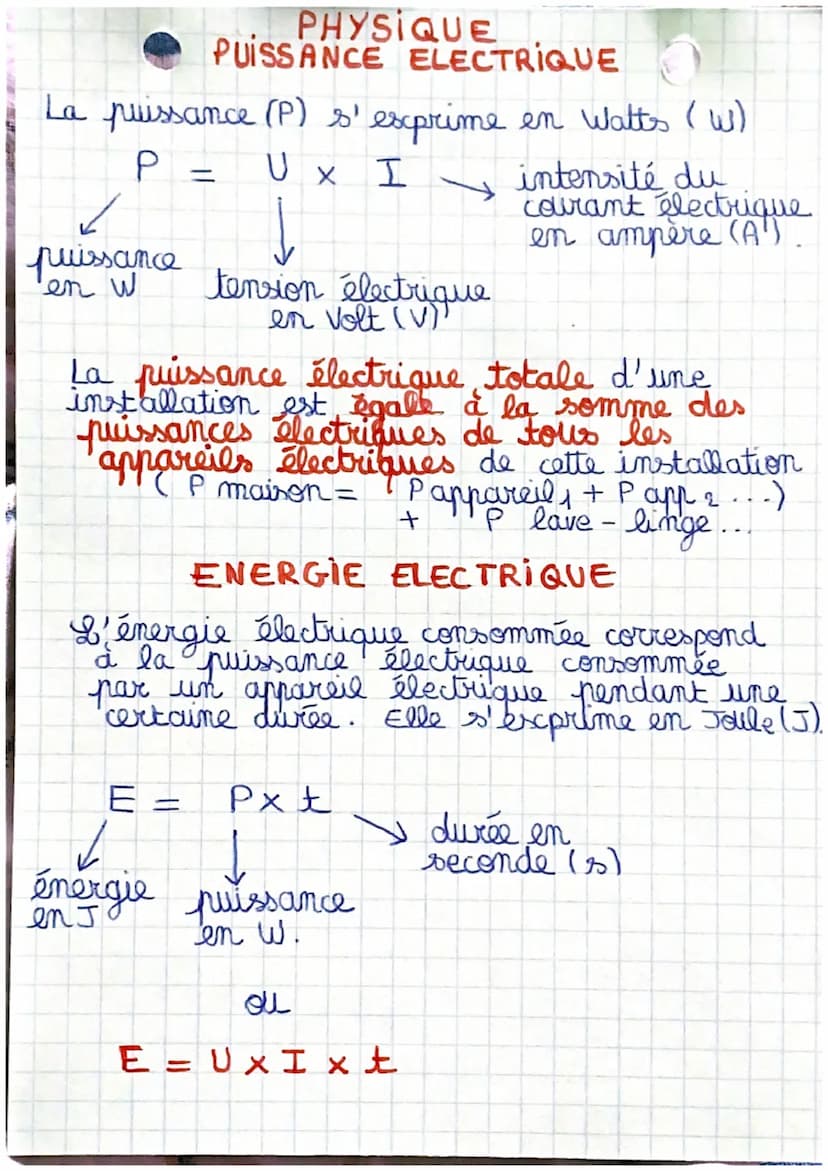 PHYSIQUE
PUISSANCE ELECTRIQUE
La puissance (P) s'exprime en Watts (W)
P = U × I → intensité du
courant électrique
en ampère (A).
puissance
en W
tension électrique
en Volt (V)
La puissance électrique totale d'une
installation est égale à la somme des
puissances électriques de tous les
appareils électriques de cette installation
(P maison = P appareil 1 + P app 2 ...)
+ P lave-linge ...
ENERGIE ELECTRIQUE
L'énergie électrique consommée correspond
à la puissance électrique consommée
par un appareil électrique pendant une
certaine durée. Elle s'exprime en Joule (J).
E = P × t
durée en
seconde (s)
énergie
en J
puissance
en W.
ou
E = U × I × t